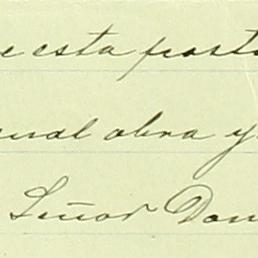 e esta posta
ual obra y
Señor Don